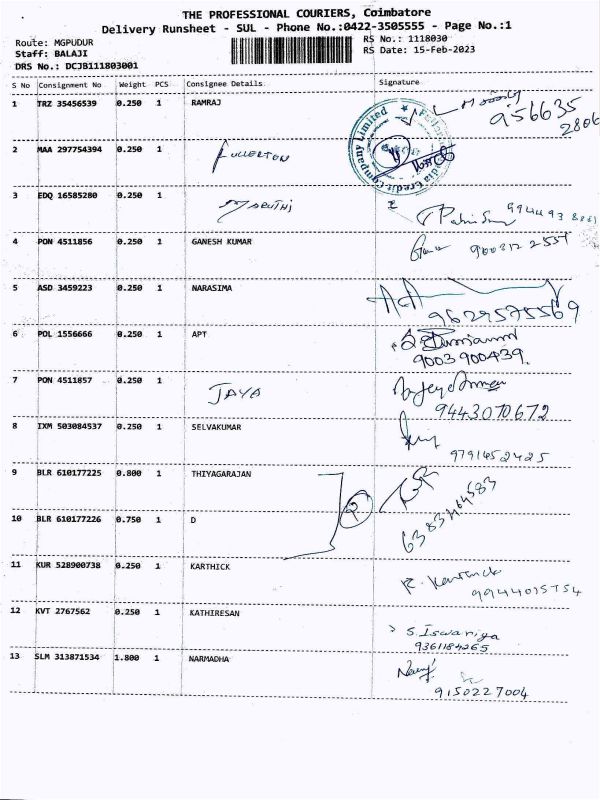 THE PROFESSIONAL COURIERS, Coimbatore
Delivery Runsheet - SUL - Phone No.:0422-3505555 - Page No.:1
Route: MGPUDUR RS No.: 1118030
Staff: BALAJI RS Date: 15-Feb-2023
DRS No.: DCJB111803001
S No Consignment No Weight PCS Consignee Details Signature
1 TRZ 35456539 0.250 1 RAMRAJ 956635
2806
2 MAA 297754394 0.250 1 FULLERTON
Credit Company Limited
3 EDQ 16585280 0.250 1 MARUTHI
4 PON 4511856 0.250 1 GANESH KUMAR
5 ASD 3459223 0.250 1 NARASIMA 9629575569
6 POL 1556666 0.250 1 APT
9003900439.
7 PON 4511857 0.250 1 JAYA
9443070672
8 IXM 503084537 0.250 1 SELVAKUMAR
9791452425
9 BLR 610177225 0.800 1 THIYAGARAJAN
10 BLR 610177226 0.750 1 D
11 KUR 528900738 0.250 1 KARTHICK
12 KVT 2767562 0.250 1 KATHIRESAN
S.Iswariya
9361184265
13 SLM 313871534 1.800 1 NARMADHA
9150227004